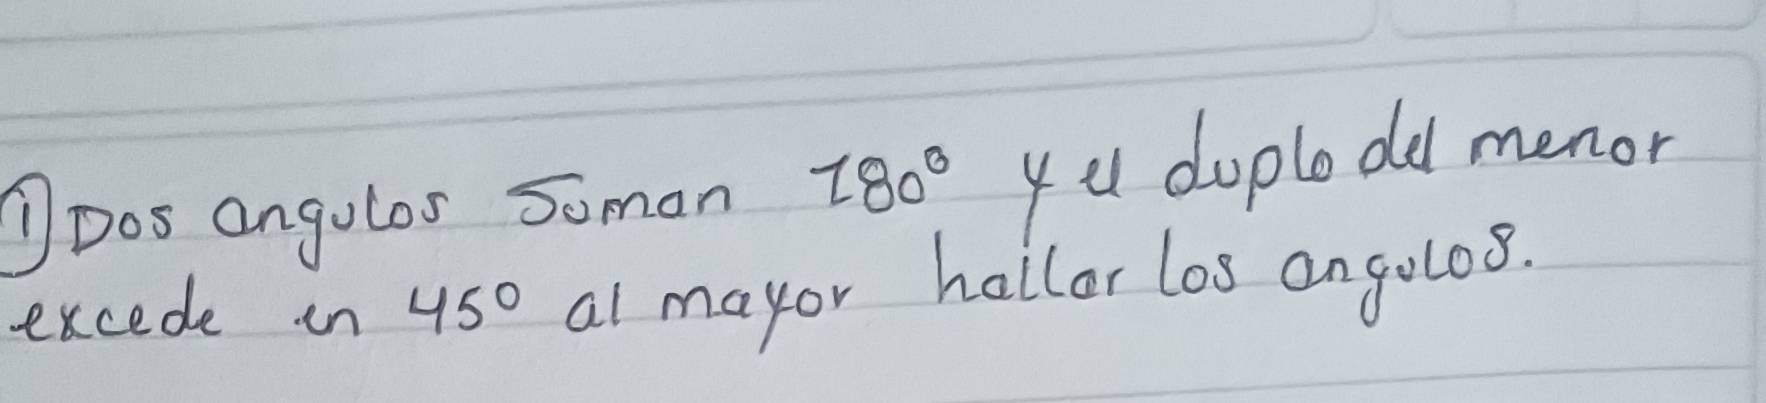 ① Dos angulos Suman 180° y el duplo del menor
excede en 45° al mayor hallar los angulos.